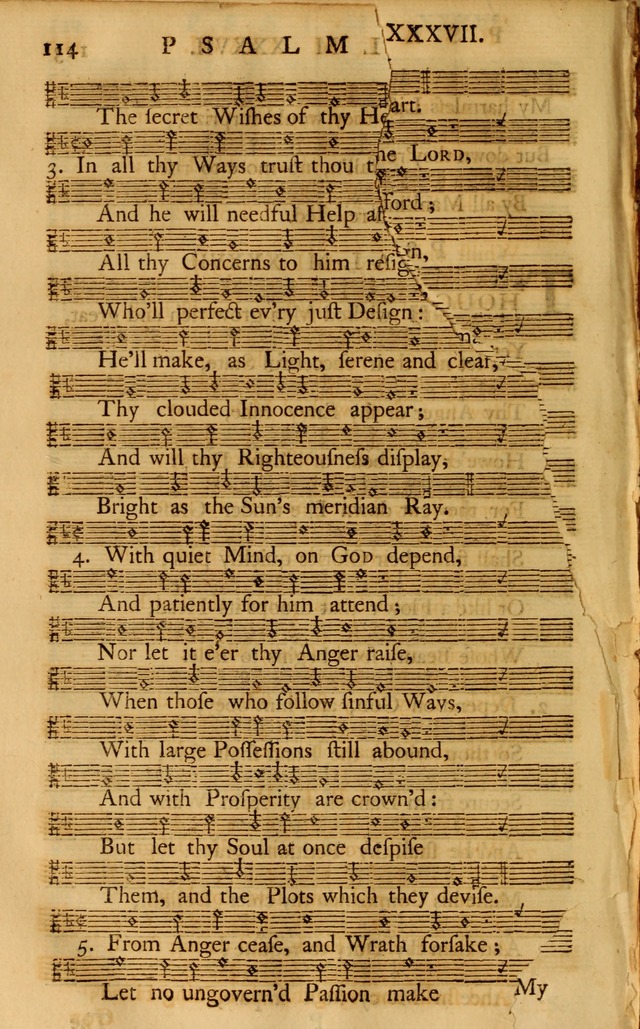 114 PSALM XXXVII.
The ſecret Wiſhes of thy Heart.
3. In all thy Ways truſt thou the LORD,
And he will needful Help afford;
All thy Concerns to him reſign,
Who'll perfect ev'ry juſt Deſign:
He'll make, as Light, ſerene and clear,
Thy clouded Innocence appear;
And will thy Righteouſneſs diſplay,
Bright as the Sun's meridian Ray.
4. With quiet Mind, on GOD depend,
And patiently for him attend;
Nor let it e'er thy Anger raiſe,
When thoſe who follow ſinful Ways,
With large Poſſeſſions ſtill abound,
And with Proſperity are crown'd:
But let thy Soul at once deſpiſe
Them, and the Plots which they deviſe.
5. From Anger ceaſe, and Wrath forſake;
Let no ungovern'd Paſſion make
My